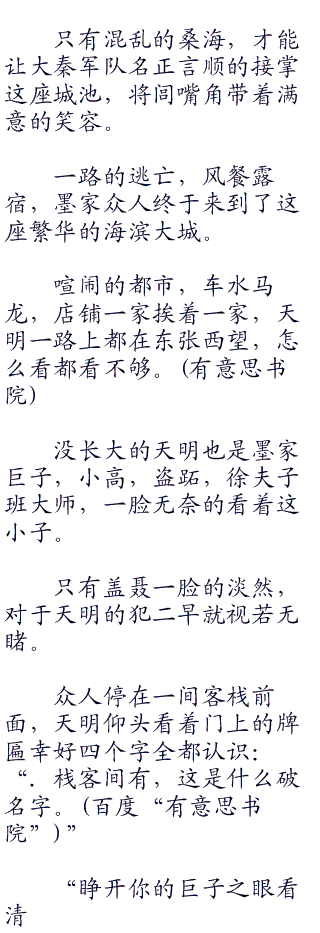 只有混乱的桑海，才能
让大秦军队名正言顺的接掌
这座城池，将闾嘴角带着满
意的笑容。
一路的逃亡，风餐露
宿，墨家众人终于来到了这
座繁华的海滨大城。
喧闹的都市，车水马
龙，店铺一家挨着一家，天
明一路上都在东张西望，怎
么看都看不够。(有意思书
院)
没长大的天明也是墨家
巨子，小高，盗跖，徐夫子
班大师，一脸无奈的看着这
小子。
只有盖聂一脸的淡然，
对于天明的犯二早就视若无
睹。
众人停在一间客栈前
面，天明仰头看着门上的牌
匾幸好四个字全都认识：
“．栈客间有，这是什么破
名字。(百度“有意思书
院”)”
“睁开你的巨子之眼看
清